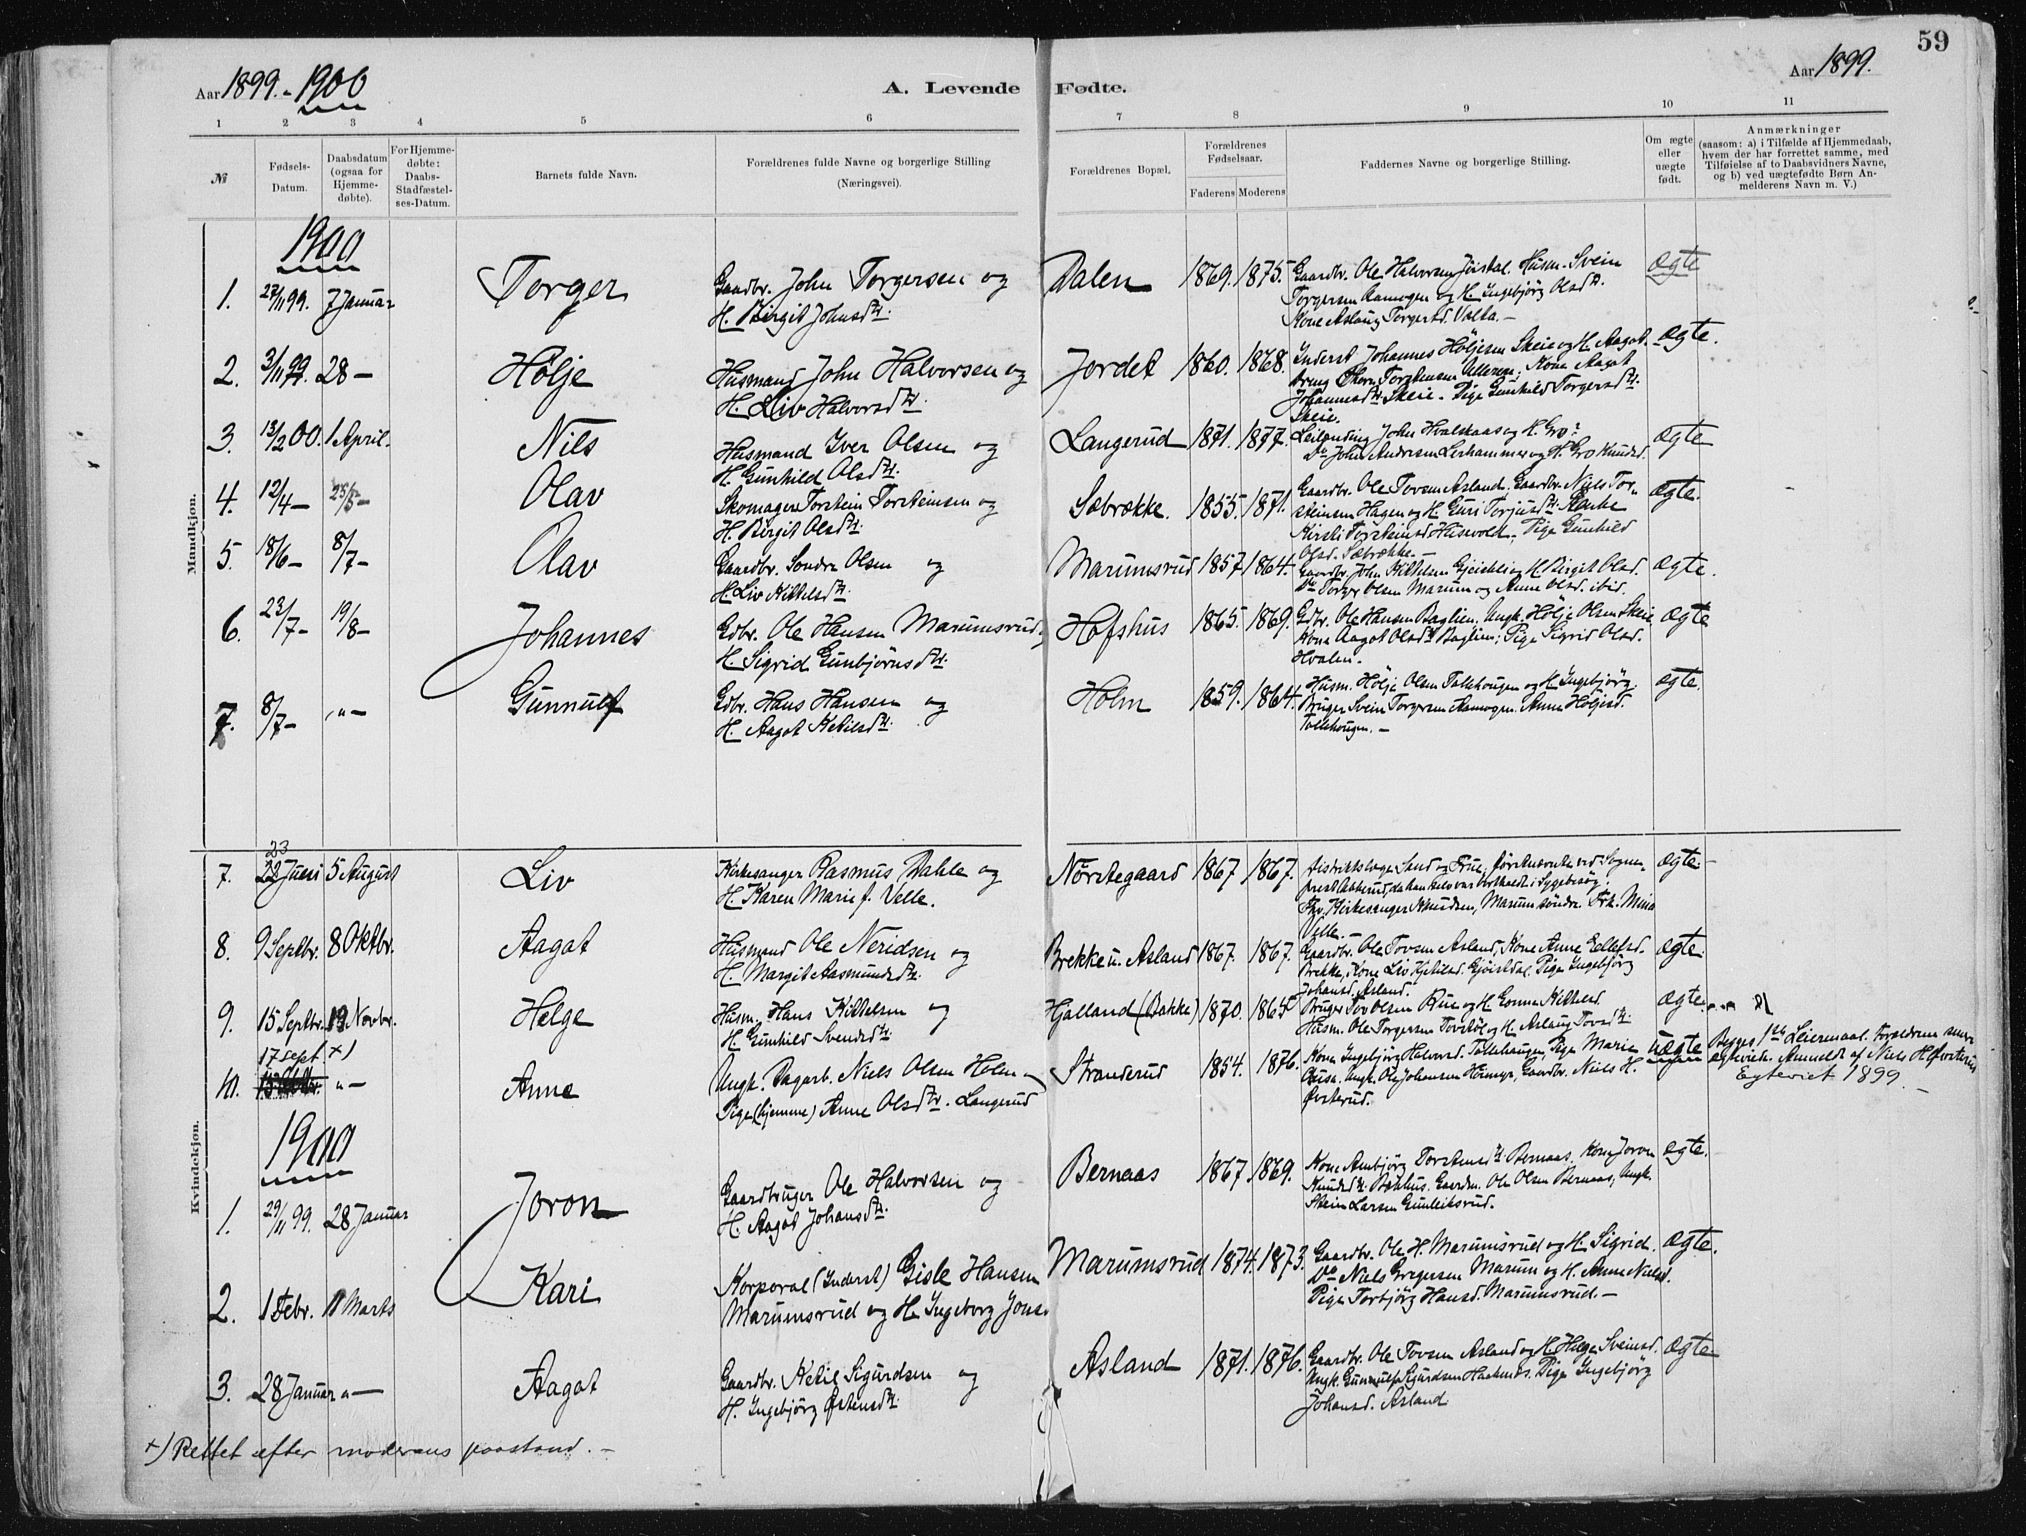 59
Aar 1899.-1900
A. Levende Fødte.
Aar 1899.
1 2 3 4 5 6 7 8 9 10 11
№
Fødsels-Datum.
Daabsdatum (ogsaa for Hjemme-døbte).
For Hjemme-døbte: Daabs-Stadfæstel-ses-Datum.
Barnets fulde Navn.
Forældrenes fulde Navne og borgerlige Stilling (Næringsvei).
Forældrenes Bopæl.
Forældrenes Fødselsaar.
Faderens Moderens
Faddernes Navne og borgerlige Stilling.
Om ægte eller uægte født.
Anmærkninger (saasom: a) i Tilfælde af Hjemmedaab, hvem der har forrettet samme, med Tilføielse af to Daabsvidners Navne, og b) ved uægtefødte Børn An-melderens Navn m. V.)
Mandkjøn.
1900
1. 27/11 99. 7 Januar Torger Gaardbr. John Torgersen og Dalen 1869. 1875. Gaardbr. Ole Halvorsen Husm. Svein ægte
H. Birgit Johnsdtr. Torgersen Aamogen og H. Ingebjörg Olsdtr.
Kone Aslaug Torgersd. Valta.
2. 3/11 99. 28 — Hölje Husmand John Halvorsen og Jordet 1860. 1868. Inderst Johannes Höljesen Skeie og H. Aagot. ægte.
H. Liv Halvorsdtr. Torstensen Kone Aagot
Johannesdtr. Skeie. Pige Gunhild Torgersdtr.
Skeie.
3. 13/2 00. 1 April. Nils Husmand Iver Olsen og Langerud 1871. 1877. Leilending John Hvalskaas og H. Gro. ægte
H. Gunhild Olsdtr. Do John Andersen Leshammer og H. Gro Knudsd.
4. 12/4 — 25/5 — Olav Skomager Torstein Torsteinsen og Sæbrække. 1855. 1871. Gaardbr. Ole Tovsen Asland. Gaardbr. Niels Tor- ægte.
H. Birgit Olsdtr. steinsen Hagen og H. Guri Torjusdtr. Enke
Kirsti Torsteinsd. Husevold. Pige Gunhild
Olsd. Sæbrække. —
5. 18/6 — 8/7 — Olav Gaardbr. Sondre Olsen og Marumsrud 1857 1864. Gaardbr. John Kittelsen og H. Birgit Olsd. ægte.
H. Liv Kittelsdtr. Do Torger Olsen Marum og Anne Olsd. ibid.
6. 23/7 — 19/8 — Johannes Gdbr. Ole Hansen Marumsrud, Hofshus 1865. 1869. Gdbr. Ole Hansen Baglien. Ungk. Hölje Olsen Skeie ægte
H. Sigrid Gunbjörnsdtr. Kone Aagot Olsdtr. Baglien; Pige Sigrid Olsd.
Hvalen.
7. 8/7 — „ — Gunnulf Gdbr. Hans Hansen og Holm 1859. 1864. Husm. Hölje Olsen Tolkhougen og H. Ingebjörg ægte.
H. Aagot Ketilsdtr. Bruger Svein Torgersen Aamogen. Anne Höljesd.
Tolkhougen. —
Kvindekjøn.
7. 23 Juni 5 August Liv Kirkesanger Rasmus Dahle og Nörstegaard 1867 1867. Distriktslæge Sand og Frue, ægte
H. Karen Marie f. Velle.
Kirkesanger Knudsen, Marum söndre. Frk. Mina
Velle. —
8. 9 Septbr. 8 Oktbr. Aagot Husmand Ole Neridsen og Brekke u. Asland 1867. 1867. Gaardbr. Ole Tovsen Asland, Kone Anne Eellefsd. ægte.
H. Margit Aasmundsdtr. Brekke, Kone Liv Kjetilsd. Gjöistdal. Pige Ingebjörg
Johansd. Asland.
9. 15 Septbr. 19 Novbr. Helge Husm. Hans Kittelsen og Hjalland (Bakke) 1870. 1865 Bruger Tov Olsen Rue og H. Gonne Kittelsd. ægte.
H. Gunhild Svendsdtr. Husm. Ole Torgersen og H. Aslaug Tovsdtr.
10. 17 sept x) „ — Anne Ungk. Dagarb. Niels Olsen Holm og Stranderud 1854. 1876. Kone Ingebjörg Halvorsd. Tolkhaugen, Pige Marie uægte Begges 1ste Leiermaal. Forældrene senere
Pige (hjemme) Anne Olsdtr. Langerud Ungk. Ole Johansen Gaardbr. Niels H. ægteviede. Anmeldt af Niels H. Örsterud
Örsterud. Egteviet 1899. —
1900
1. 29/11 99. 28 Januar Joron Gaardbruger Ole Halvorsen og Bernaas 1867 1869. Kone Torstensdtr. Bernaas. Kone Joron ægte.
H. Aagot Johansdtr. Knudsdtr. Bakhus. Gaardm. Ole Olsen Bernaas, Ungk.
Stein Larsen Gunleiksrud.
2. 1 Febr. 11 Marts Kari Korporal (Inderst) Gisle Hansen Marumsrud 1874. 1873. Gaardbr. Ole H. Marumsrud og H. Sigrid. ægte.
Marumsrud og H. Ingeborg Jonsd. Do Niels Gregersen Marum og H. Anne Nielsd.
Pige Torbjörg Hansd. Marumsrud. —
3. 28 Januar „ — Aagot Gaardbr. Ketil Sigurdsen og Asland 1871. 1876. Gaardbr. Ole Tovsen Asland og H. Helge Sveinsd. ægte
H. Ingebjörg Östensdtr. Ungk. Gunnulf Sigurdsen Haatnes. Pige Ingebjörg
Johansd. Asland
x) Rettet efter moderens paastand. —